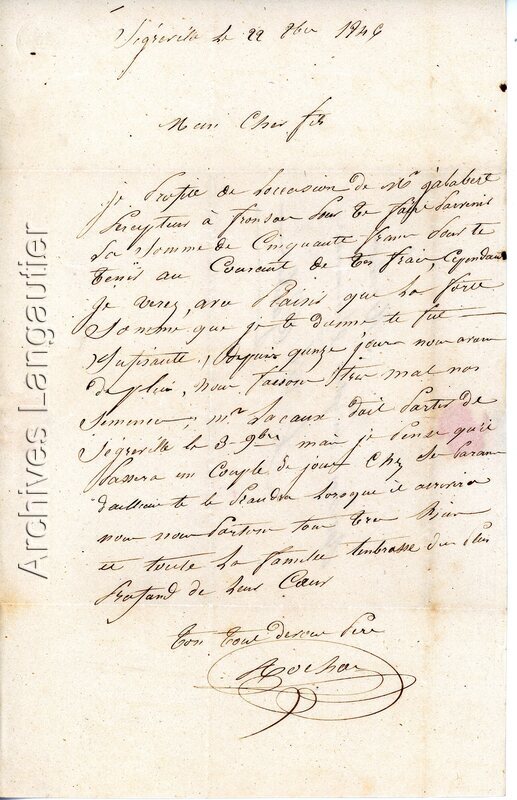 Ségreville le 22 8bre 1846
Mon Cher fils
je Profite de Loccasion de Mr jalabert
Percepteur à fronsac Pour te faire Parvenir
La Somme de Cinquante franc Pour te
tenir au Courant de tes frais, Cependant
je verez avec Plaisir que La forte
Somme que je te donne te fut
Sufisante, depuis quinze jours nous avons
de pluie, nous faisons très mal nos
Semences, mr Lacaux doit Partir de
Ségreville le 3 9bre mais je Pense qu'il
Passera un Couple de jours Chez Se Parans
dailleurs te le Prandra Lorsque il arrivera
nous nous Portons tous très Bien
et toute La famille tembrasse du plus
Profond de Leur Cœur
ton tout devoué Père
Rochas
Archives Langautier